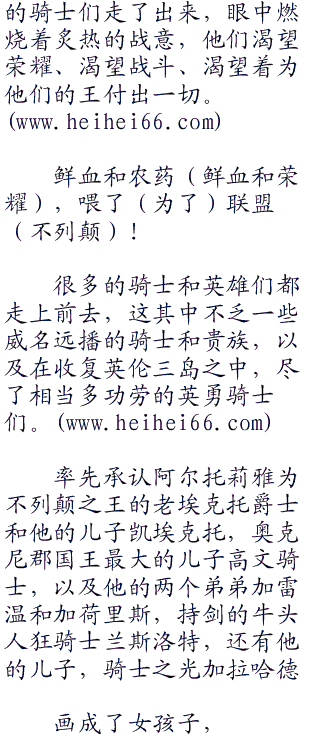 的骑士们走了出来，眼中燃
烧着炙热的战意，他们渴望
荣耀、渴望战斗、渴望着为
他们的王付出一切。
(www.heihei66.com)
鲜血和农药（鲜血和荣
耀），喂了（为了）联盟
（不列颠）！
很多的骑士和英雄们都
走上前去，这其中不乏一些
威名远播的骑士和贵族，以
及在收复英伦三岛之中，尽
了相当多功劳的英勇骑士
们。(www.heihei66.com)
率先承认阿尔托莉雅为
不列颠之王的老埃克托爵士
和他的儿子凯埃克托，奥克
尼郡国王最大的儿子高文骑
士，以及他的两个弟弟加雷
温和加荷里斯，持剑的牛头
人狂骑士兰斯洛特，还有他
的儿子，骑士之光加拉哈德
画成了女孩子，